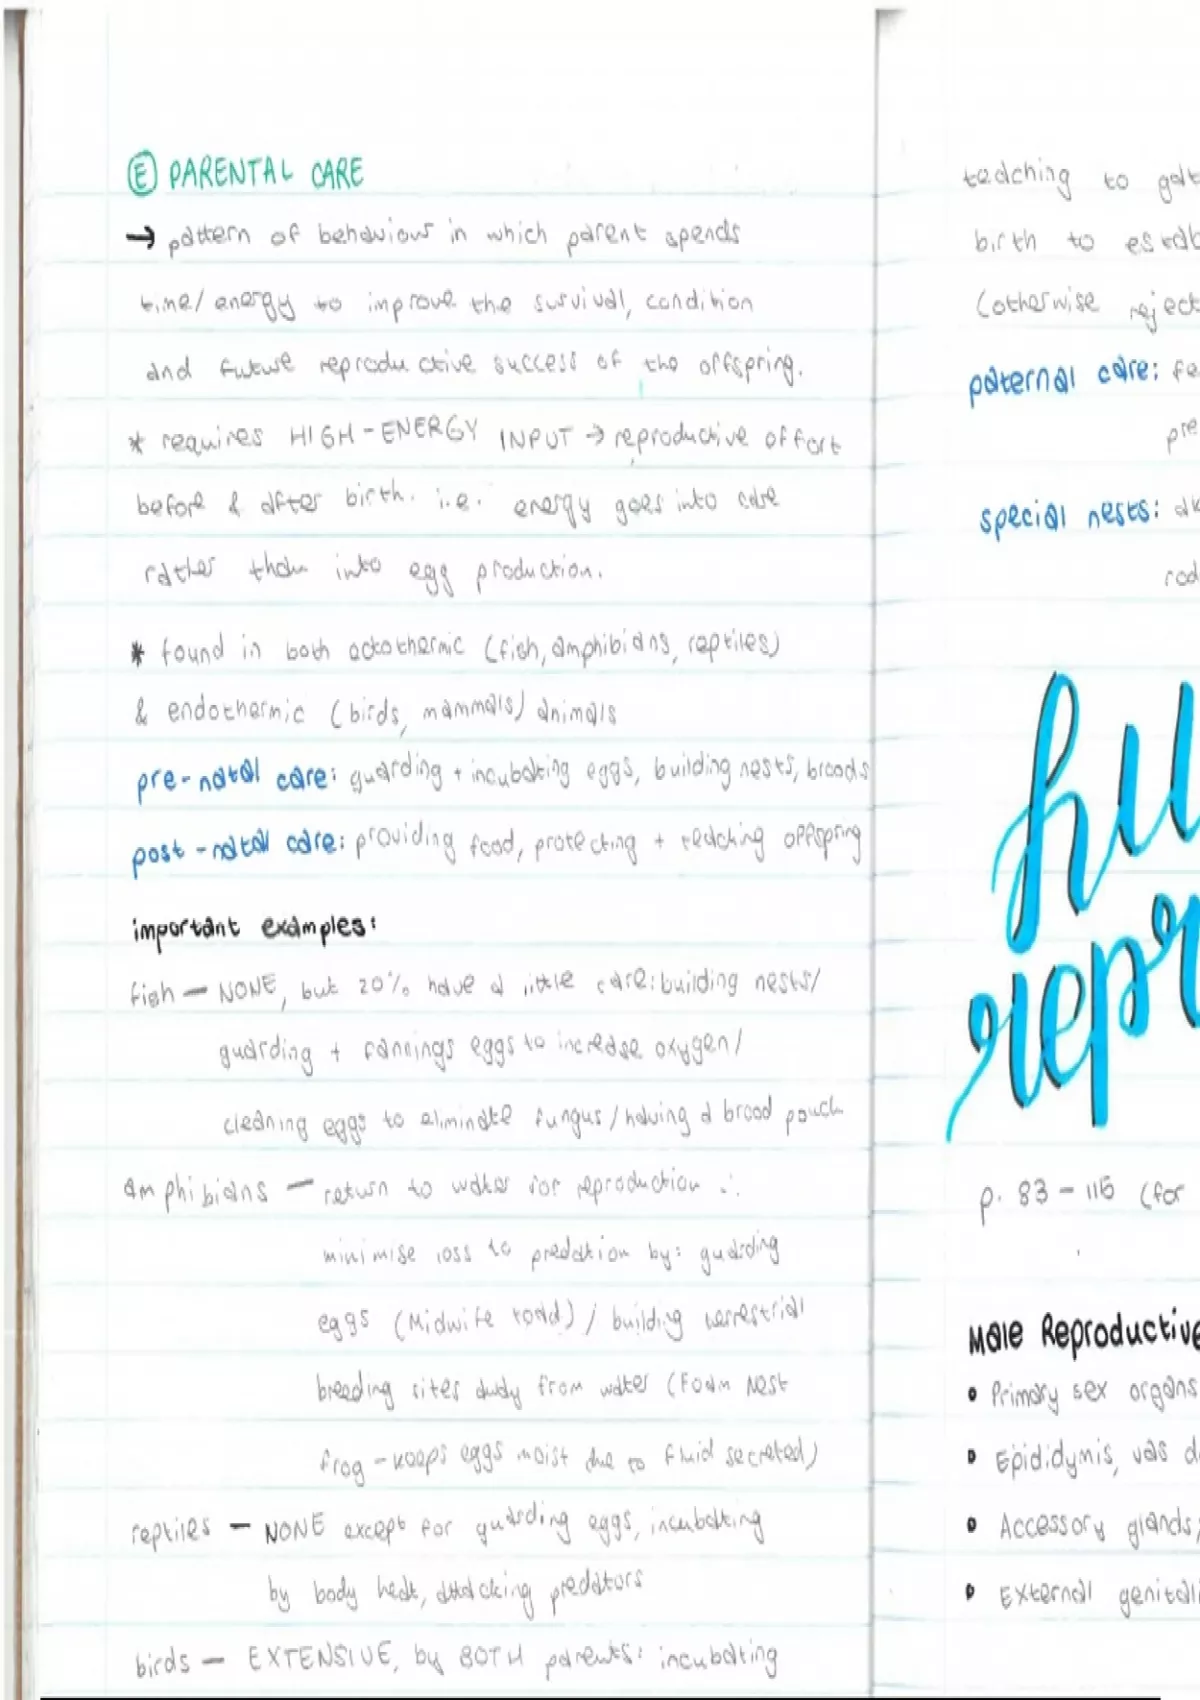 Ⓔ PARENTAL CARE
→ pattern of behaviour in which parent spends
time/energy to improve the survival, condition
and future reproductive success of the offspring.
* requires HIGH-ENERGY INPUT → reproductive effort
before & after birth. i.e. energy goes into care
rather than into egg production.
* found in both ectothermic (fish, amphibians, reptiles)
& endothermic (birds, mammals) animals
pre-natal care: guarding + incubating eggs, building nests, broods
post-natal care: providing food, protecting + teaching offspring
important examples:
fish — NONE, but 20% have a little care: building nests/
guarding + fannings eggs to increase oxygen/
cleaning eggs to eliminate fungus/having a brood pouch
amphibians — return to water for reproduction ∴
minimise loss to predation by: guarding
eggs (Midwife toad) / building terrestrial
breeding sites away from water (Foam Nest
frog - keeps eggs moist due to fluid secreted)
reptiles — NONE except for guarding eggs, incubating
by body heat, attacking predators
birds — EXTENSIVE, by BOTH parents: incubating
teaching to
birth to
(otherwise
paternal care:
special nests:
hu
repr
p. 83 - 115 (for
Male Reproductive
• Primary sex organs
• Epididymis, vas
• Accessory glands,
• External